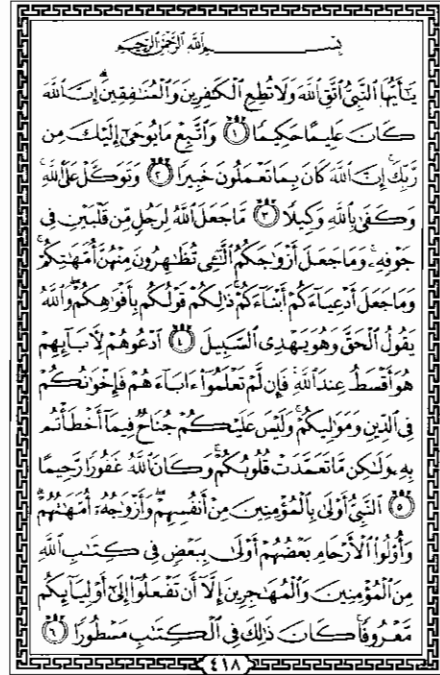 بِسْمِ اللَّهِ الرَّحْمَٰنِ الرَّحِيمِ
يَٰٓأَيُّهَا ٱلنَّبِىُّ ٱتَّقِ ٱللَّهَ وَلَا تُطِعِ ٱلْكَٰفِرِينَ وَٱلْمُنَٰفِقِينَ ۗ إِنَّ ٱللَّهَ
كَانَ عَلِيمًا حَكِيمًا ١ وَٱتَّبِعْ مَا يُوحَىٰٓ إِلَيْكَ مِن
رَّبِّكَ ۚ إِنَّ ٱللَّهَ كَانَ بِمَا تَعْمَلُونَ خَبِيرًا ٢ وَتَوَكَّلْ عَلَى ٱللَّهِ ۚ
وَكَفَىٰ بِٱللَّهِ وَكِيلًا ٣ مَّا جَعَلَ ٱللَّهُ لِرَجُلٍ مِّن قَلْبَيْنِ فِى
جَوْفِهِۦ ۚ وَمَا جَعَلَ أَزْوَٰجَكُمُ ٱلَّٰٓـِٔى تُظَٰهِرُونَ مِنْهُنَّ أُمَّهَٰتِكُمْ ۚ
وَمَا جَعَلَ أَدْعِيَآءَكُمْ أَبْنَآءَكُمْ ۚ ذَٰلِكُمْ قَوْلُكُم بِأَفْوَٰهِكُمْ ۖ وَٱللَّهُ
يَقُولُ ٱلْحَقَّ وَهُوَ يَهْدِى ٱلسَّبِيلَ ٤ ٱدْعُوهُمْ لِـَٔابَآئِهِمْ
هُوَ أَقْسَطُ عِندَ ٱللَّهِ ۚ فَإِن لَّمْ تَعْلَمُوٓا۟ ءَابَآءَهُمْ فَإِخْوَٰنُكُمْ
فِى ٱلدِّينِ وَمَوَٰلِيكُمْ ۚ وَلَيْسَ عَلَيْكُمْ جُنَاحٌ فِيمَآ أَخْطَأْتُم
بِهِۦ وَلَٰكِن مَّا تَعَمَّدَتْ قُلُوبُكُمْ ۚ وَكَانَ ٱللَّهُ غَفُورًا رَّحِيمًا
٥ ٱلنَّبِىُّ أَوْلَىٰ بِٱلْمُؤْمِنِينَ مِنْ أَنفُسِهِمْ ۖ وَأَزْوَٰجُهُۥٓ أُمَّهَٰتُهُمْ ۗ
وَأُو۟لُوا۟ ٱلْأَرْحَامِ بَعْضُهُمْ أَوْلَىٰ بِبَعْضٍ فِى كِتَٰبِ ٱللَّهِ
مِنَ ٱلْمُؤْمِنِينَ وَٱلْمُهَٰجِرِينَ إِلَّآ أَن تَفْعَلُوٓا۟ إِلَىٰٓ أَوْلِيَآئِكُم
مَّعْرُوفًا ۚ كَانَ ذَٰلِكَ فِى ٱلْكِتَٰبِ مَسْطُورًا ٦
٤١٨